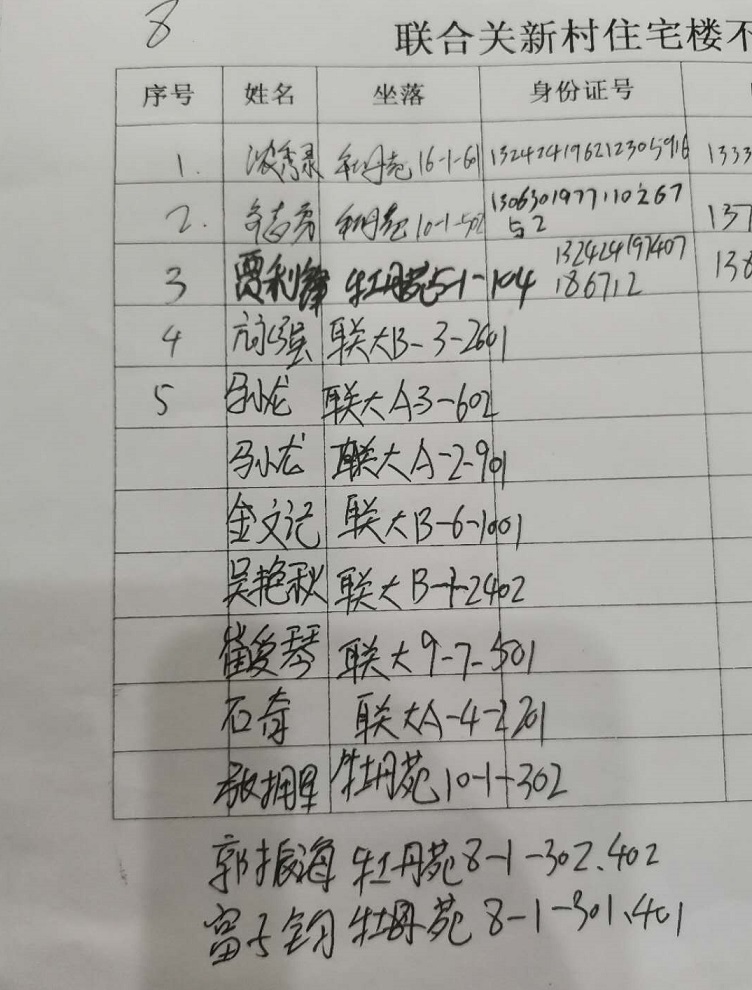 8
联合关新村住宅楼不
序号 姓名 坐落 身份证号
1. 牡丹苑16-1-601 132424196212305916 1333
2. 牡丹苑10-1-502 137
130630197711026
3 贾利锋 牡丹苑5-1-104 132424197407 138
186712
4 强 联大B-3-2601
5 马小龙 联大A3-602
马小龙 联大A-2-901
金文记 联大B-6-1001
吴艳秋 联大B-1-2402
崔爱琴 联大9-7-501
石奇 联大A-4-2201
牡丹苑10-1-302
郭振海 牡丹苑8-1-302、402
牡丹苑8-1-301、401